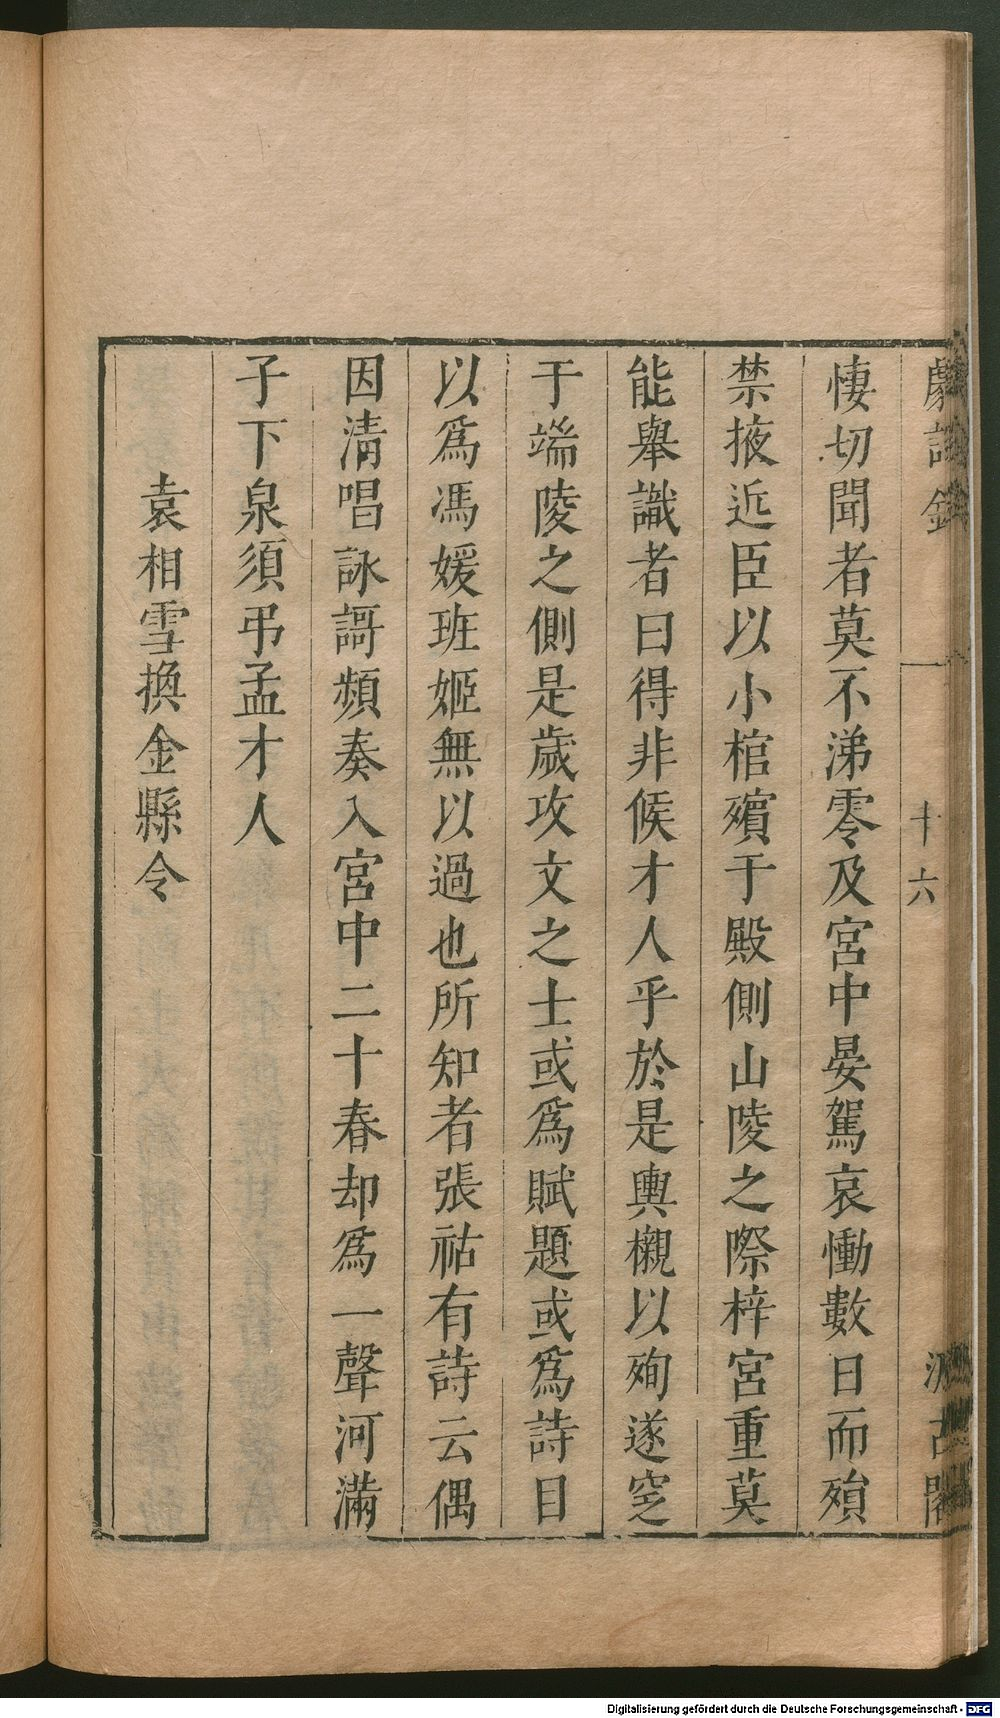 劇談錄 十六 汲古閣
悽切聞者莫不涕零及宮中晏駕哀慟數日而殞
禁掖近臣以小棺殯于殿側山陵之際梓宮重莫
能舉識者曰得非候才人乎於是輿櫬以殉遂窆
于端陵之側是歲攻文之士或爲賦題或爲詩目
以爲馮媛班姬無以過也所知者張祜有詩云偶
因清唱詠謌頻奏入宮中二十春却爲一聲河滿
子下泉須弔孟才人
袁相雪換金縣令
Digitalisierung gefördert durch die Deutsche Forschungsgemeinschaft - DFG